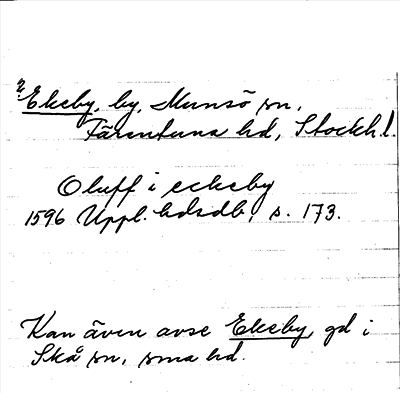 ? Ekeby, by, Munsö sn,
Färentuna hd, Stockh. l.
Oluff i eckeby
1596 Uppl. hdsdb, s. 173.
Kan även avse Ekeby, gd i
Skå sn, sma hd.